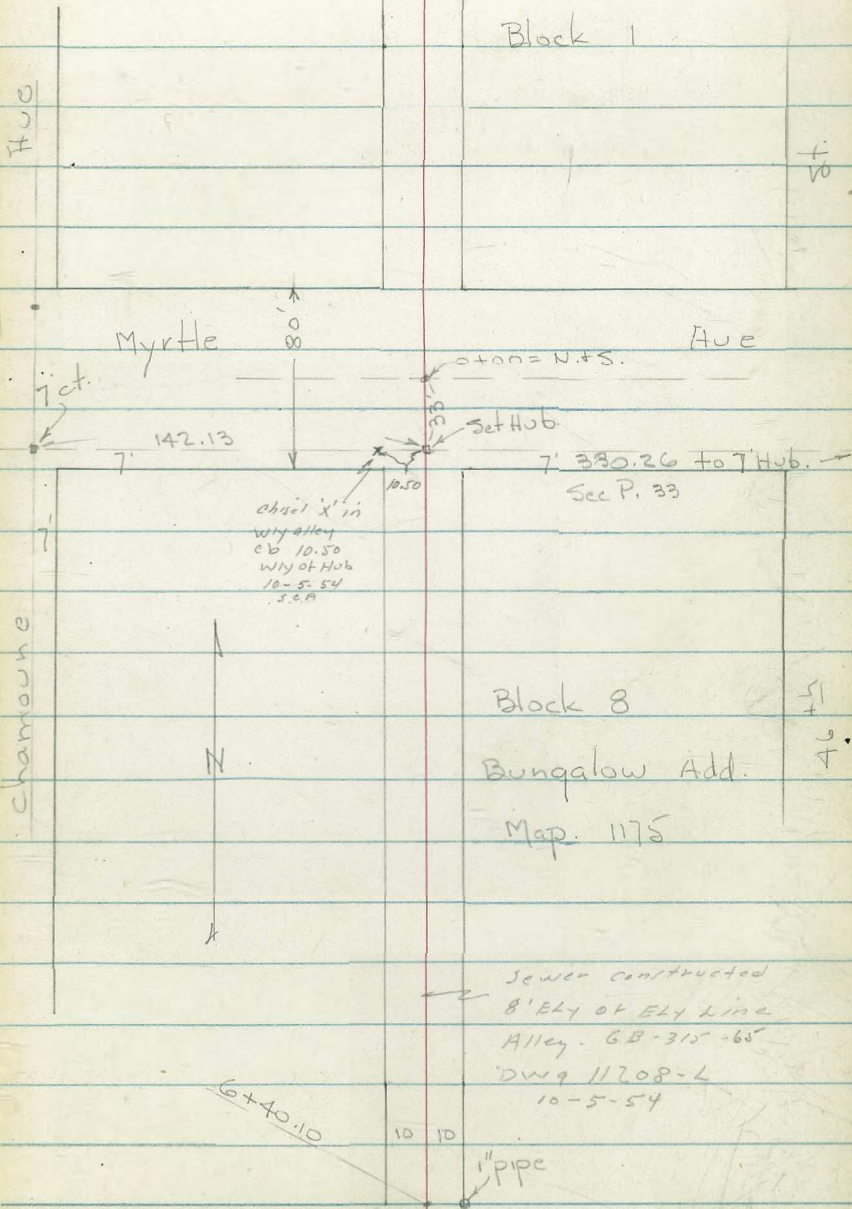 Block 1
Ave
St.
Myrtle
80'
Ave
0+00 = N. & S.
7' ct.
33'
Set Hub.
142.13
7'
7' 330.26 to 7' Hub.
10.50
See P. 33
chisel 'X' in
Wly alley
cb 10.50
Wly of Hub
10-5-54
S.C.A
7'
Chamoune
N
Block 8
46 th
Bungalow Add.
Map. 1175
Sewer constructed
8' Ely of Ely Line
Alley. GB-315-65
DWg 11208-L
10-5-54
6+40.10
10 10
1" pipe